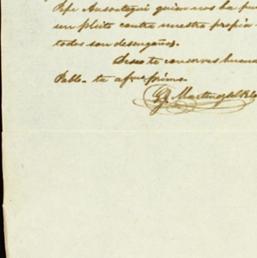 Pepe Ansoategui quiso nos ha pue
un pleito contra nuestra propia
todos son desengaños.
Deseo te conserves buena
Pablo te af.mo primo.
G. Martinez del Rio